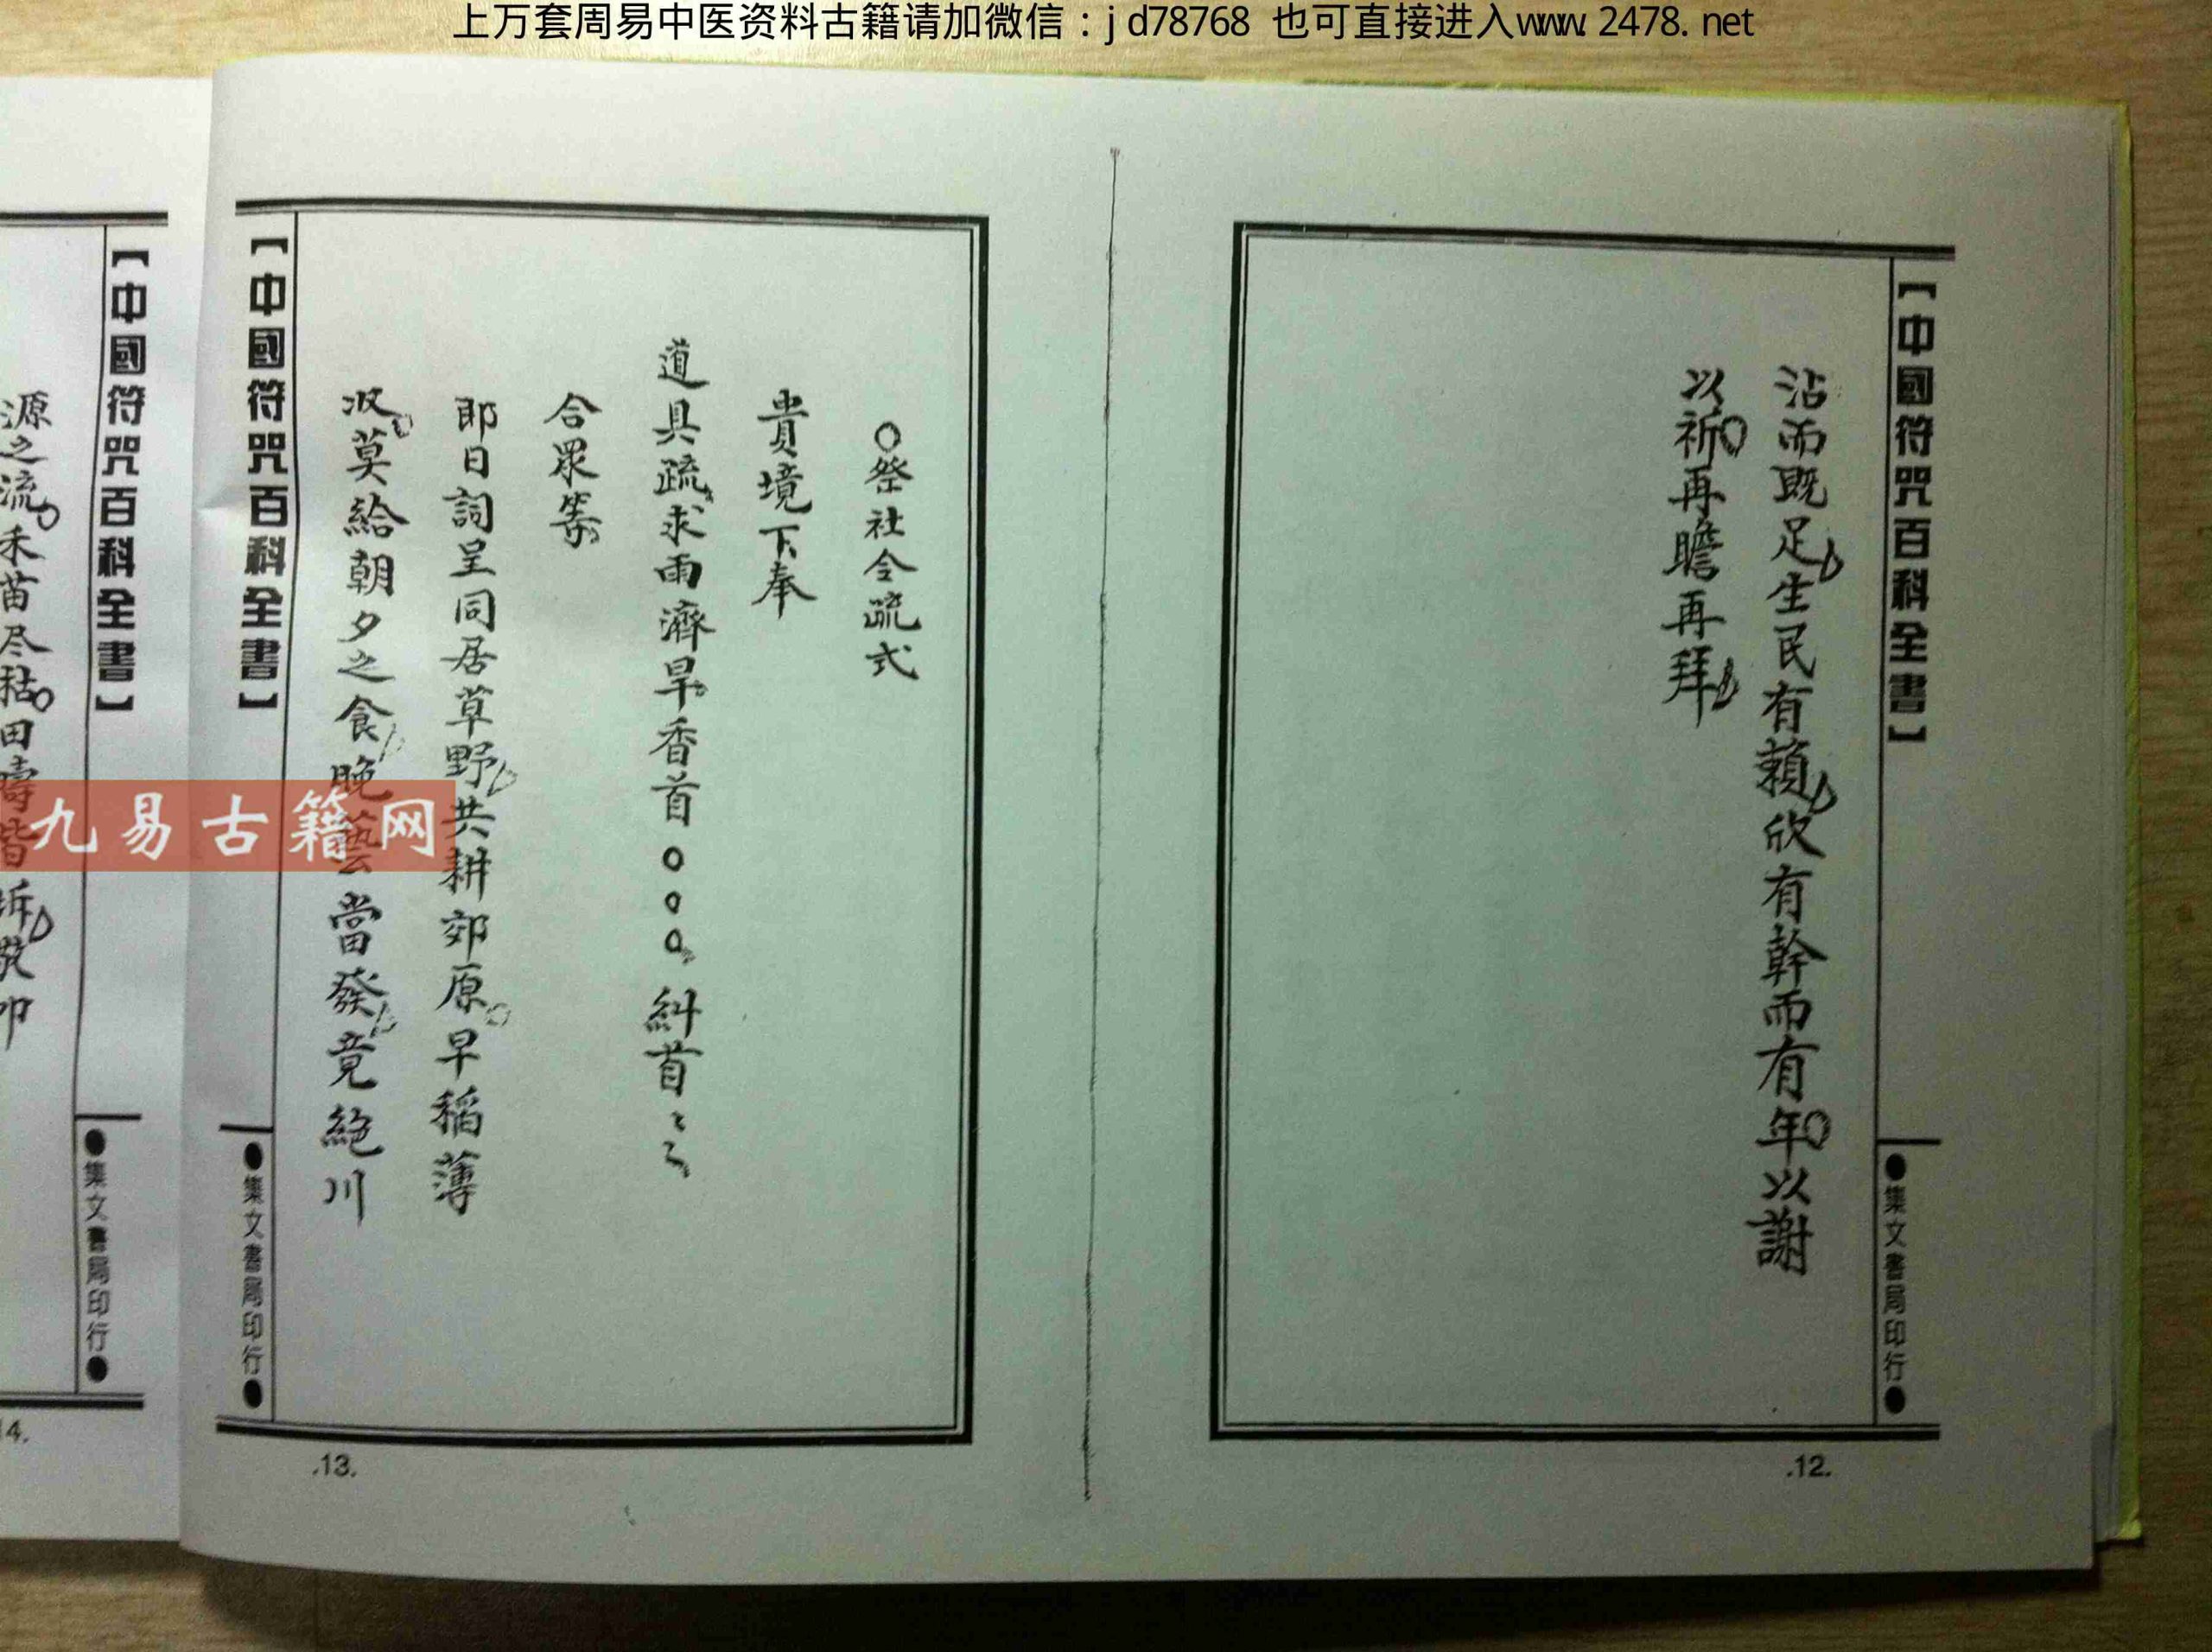 上万套周易中医资料古籍请加微信：jd78768 也可直接进入www.2478.net
【中國符咒百科全書】
●集文書局印行●
沾而既足生民有賴欣有幹而有年以謝
以祈再瞻再拜
.12.
○祭社令疏式
貴境下奉
道具疏求雨濟旱香首○○○糾首〻〻
合眾等
即日詞呈同居草野共耕郊原早稻薄
收莫給朝夕之食晚藝當發竟絕川
【中國符咒百科全書】
●集文書局印行●
.13.
【中國符咒百科全書】
●集文書局印行●
源之流禾苗尽秙田疇皆坼
14.
九易古籍网